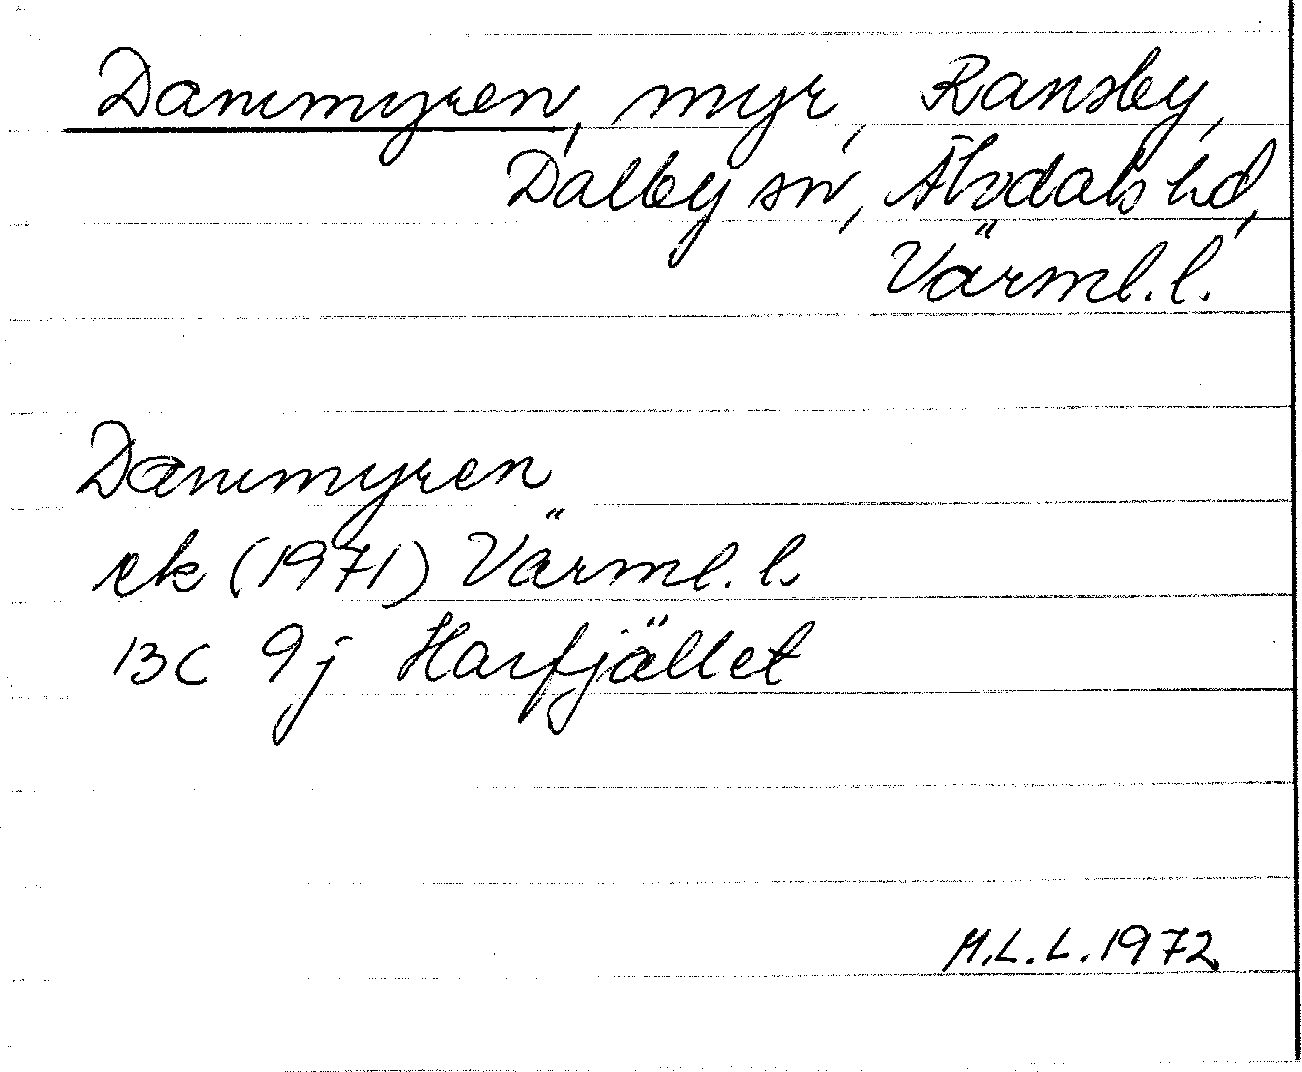 Dammyren, myr, Ransby,
Dalby sn, Älvdals hd,
Värml. l.
Dammyren
rk (1971) Värml. l.
13C 9j Harfjället
M.L.L. 1972